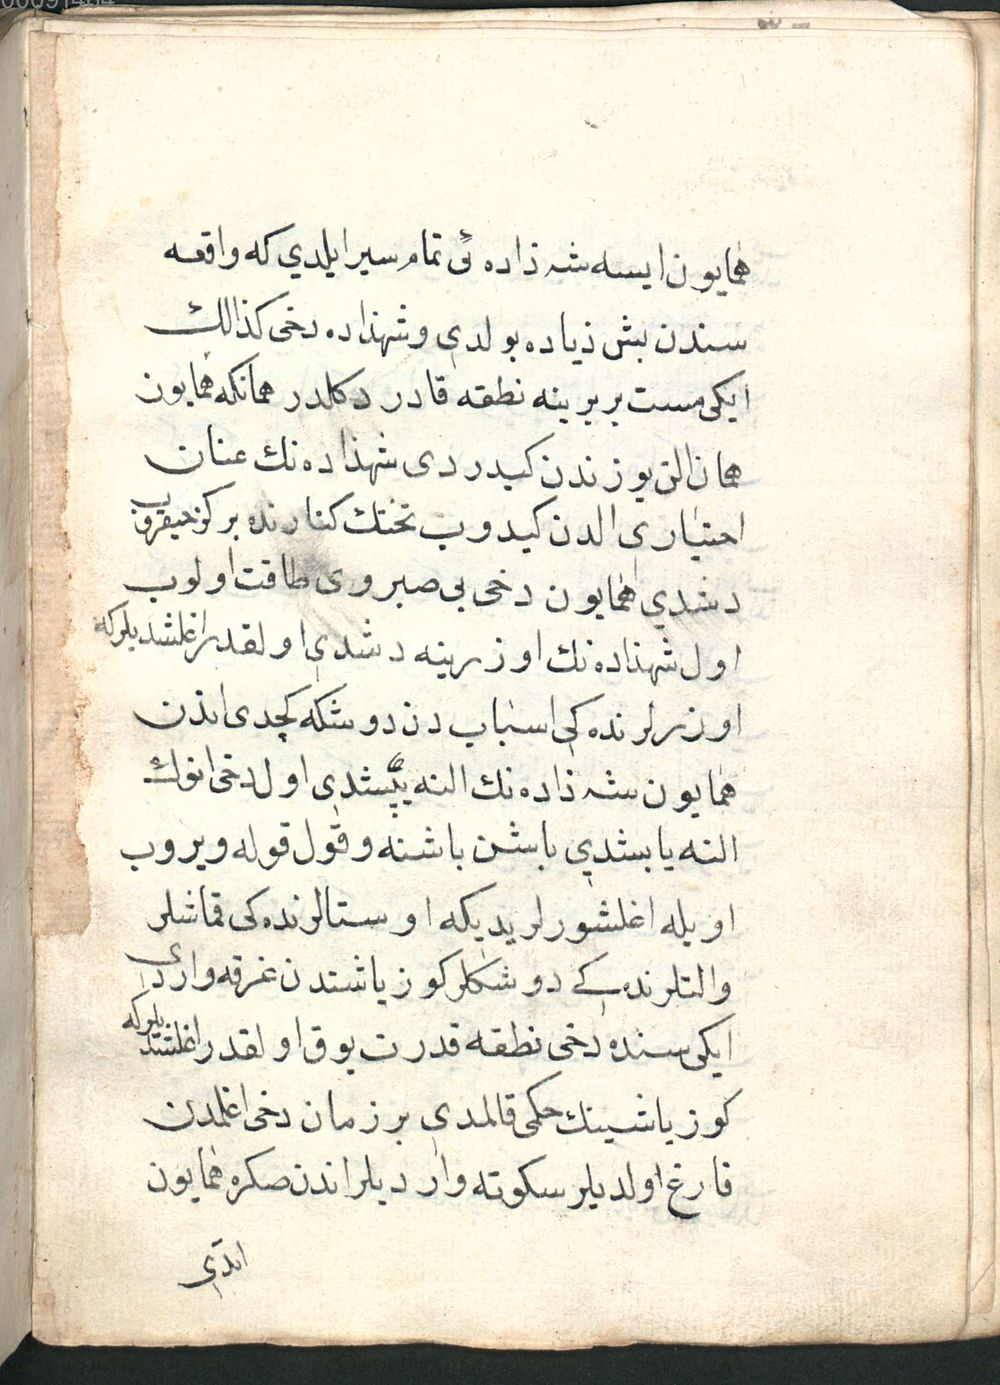 همايون ايسه شه زاده نئ تمام سير ايلدي كه واقعه
سندن بش زياده بولدى و شهذاده دخى كذالك
ايكى مست بربرينه نطقه قادر دكلدر همانكه همايون
همان التى يوزندن كيدردى شهذاده نك عنان
اختيارى الدن كيدوب تختك كنارنده بركز حيقروب
دشدي همايون دخى بى صبر وى طاقت اولوب
اول شهذاده نك اوزرينه دشدى اولقدر اغلشديلركه
اوزرلرنده كى اسباب دن دوشكه كچدى اندن
همايون شه زاده نك النه يپشدى اول دخى انوك
النه يابشدي باشن باشنه و قول قوله ويروب
اويله اغلشورلريديكه اوستالرنده كى قماشلر
والتلرنده كے دوشكلر كوز ياشندن غرقه واردى
ايكى سنده دخى نطقه قدرت يوق اولقدر اغلشديلركه
كوز ياشينك حكمى قالمدى بر زمان دخى اغلمدن
فارغ اولديلر سكوته وارديلر اندن صكره همايون
ابدى